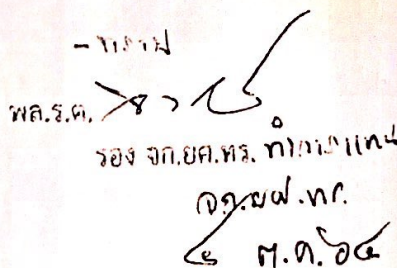 - ทราบ
พล.ร.ต.
รอง จก.ยศ.ทร. ทำการแทน
จก.ยศ.ทร.
ต.ค. ๖๔